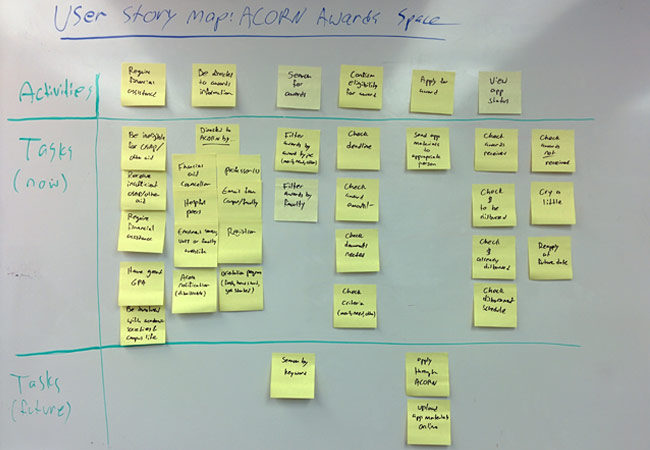 User Story Map: ACORN Awards Space
Activities
Require
financial
assistance
Be directed
to awards
information
Search
for
awards
Confirm
eligibility
for award
Apply for
award
View
app
status
Tasks
(now)
Be ineligible
for OSAP/
other aid
Receive
insufficient
OSAP/other
aid
Require
financial
assistance
Have good
GPA
Be involved
with academic
societies &
campus life
Directed to
ACORN by:
Financial
aid
counsellor
Helpful
peers
External
or faculty
website
Acorn
notification
(dismissable)
professor(s)
Email from
campus/faculty
Registrar
Orientation program
Filter
awards by
award type
Filter
awards by
faculty
Check
deadline
Check
award
amount
Check
documents
needed
Check
criteria
Send app
materials to
appropriate
person
Check
awards
received
Check
$ to be
disbursed
Check
$
already disbursed
Check
disbursement
schedule
Check
awards
not
received
Cry a
little
Reapply
at
future date
Tasks
(future)
Search by
keyword
apply
through
ACORN
upload
app materials
online